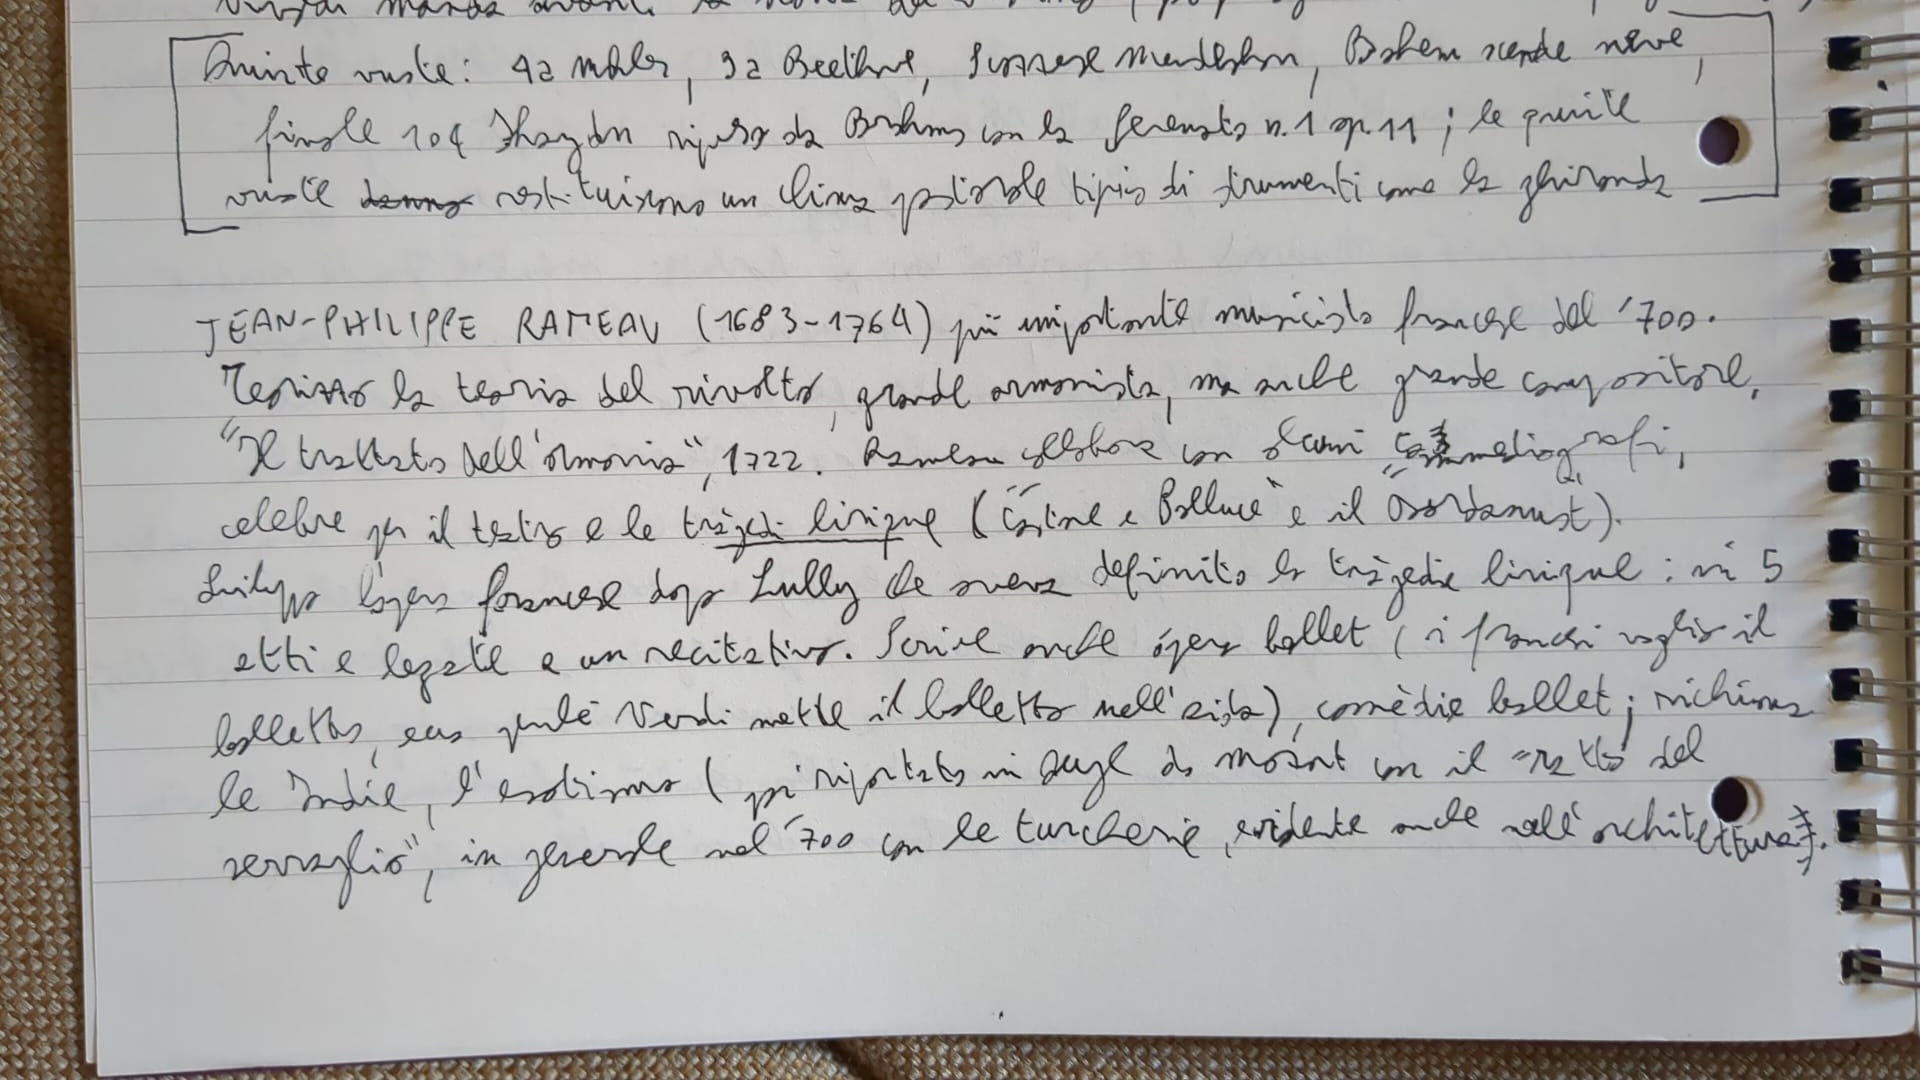 Quinte vuote: 4a Mahler, 9a Beethove, Scozzese Mendelshon, Bohem scende neve,
finale 104 Haydn ripreso da Brahms con la serenata n.1 op.11; le quinte
vuote restituiscono un clima pastorale tipico di strumenti come la ghironda
JEAN-PHILIPPE RAMEAU (1683-1764) più importante musicista francese del '700.
Teorizzò la teoria del rivolto, grande armonista, ma anche grande compositore,
"Il trattato dell'armonia", 1722. Rameau collabora con alcuni commediografi,
celebre per il teatro e le tragedi lirique ("Castore e Polluce" e il "Dardanus").
Sviluppa l'opera francese dopo Lully che aveva definito la tragedie lirique: in 5
atti e legate a un recitativo. Scrive anche opera ballet (i francesi voglio il
balletto, ecco perché Verdi mette il balletto nell'aida), comèdie ballet; richiama
le Indie, l'esotismo (poi riportato in auge da mozart con il "ratto del
serraglio", in generale nel '700 con le turcherie, evidente anche nell'architettura).